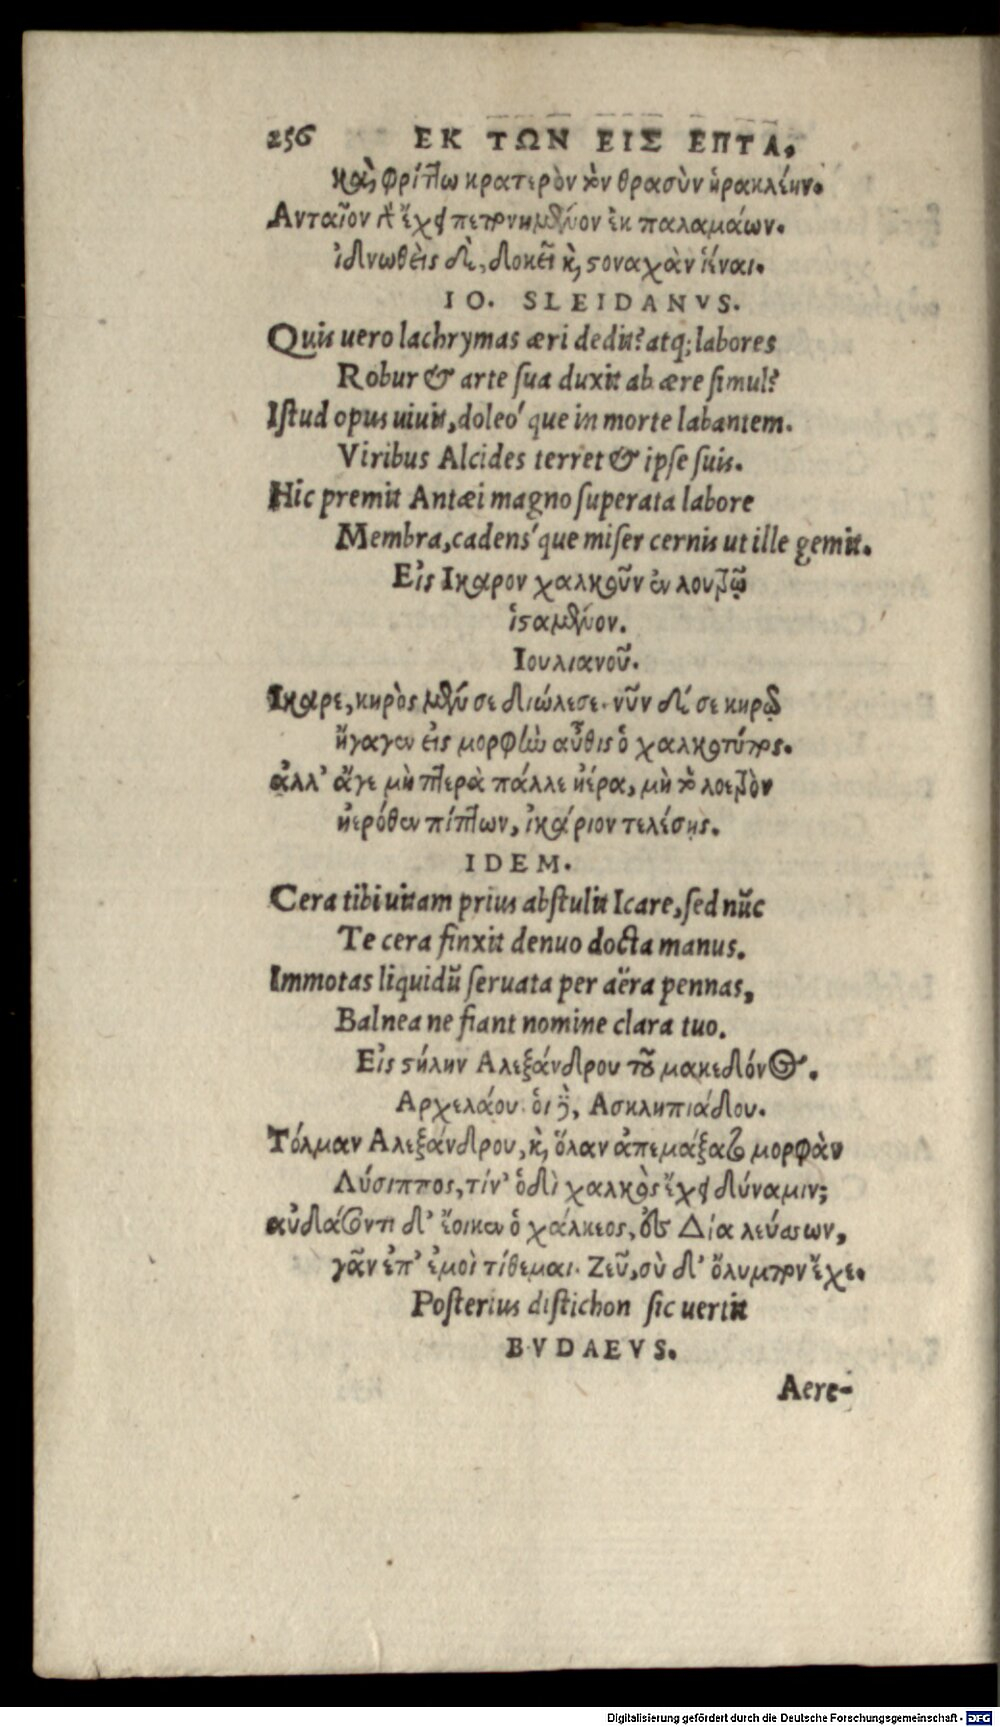 256 ΕΚ ΤΩΝ ΕΙΣ ΕΠΤΑ,
καὶ φρίττω κρατερὸν τὸν θρασὺν ἡρακλέην.
Ανταῖον δ' ἔχει πεπονημένον ἐκ παλαμάων.
ἰδνωθεὶς δὲ, δοκεῖ καὶ στοναχὰν ἱέναι.
IO. SLEIDANVS.
Quis uero lachrymas æri dedit? atq; labores
Robur & arte sua duxit ab ære simul?
Istud opus uiuit, doleo'que in morte labantem.
Viribus Alcides terret & ipse suis.
Hic premit Antæi magno superata labore
Membra, cadens'que miser cernis ut ille gemit.
Εἰς Ικαρον χαλκοῦν ἐν λουτρῷ
ἱσταμένον.
Ιουλιανοῦ.
Ικαρε, κηρὸς μέν σε διώλεσε. νῦν δέ σε κηρῷ
ἤγαγεν εἰς μορφὴν αὖθις ὁ χαλκοτύπος.
ἀλλ' ἄγε μὴ πτερὰ πάλλε ἠέρα, μὴ τὸ λοετρὸν
ἠερόθεν πίπτων, ἰκάριον τελέσῃς.
IDEM.
Cera tibi uitam prius abstulit Icare, sed nūc
Te cera finxit denuo docta manus.
Immotas liquidū seruata per aëra pennas,
Balnea ne fiant nomine clara tuo.
Εἰς στήλην Αλεξάνδρου τοῦ μακεδόνος.
Αρχελάου. ὁι δὲ, Ασκληπιάδου.
Τόλμαν Αλεξάνδρου, καὶ ὅλαν ἀπεμάξατο μορφὰν
Λύσιππος, τίν' ὁδὶ χαλκὸς ἔχει δύναμιν;
αὐδάσοντι δ' ἔοικεν ὁ χάλκεος, εἰς Δία λεύσσων,
γᾶν ἐπ' ἐμοὶ τίθεμαι. Ζεῦ, σὺ δ' ὄλυμπον ἔχε.
Posterius distichon sic uertit
BVDAEVS.
Aere-
Digitalisierung gefördert durch die Deutsche Forschungsgemeinschaft - DFG